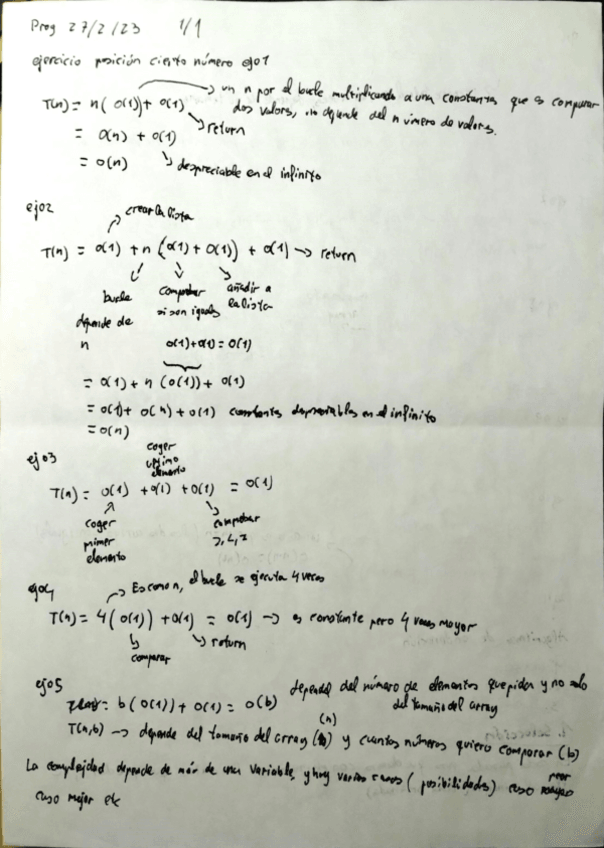 Prog 27/2/23 1/1
ejercicio posición cierto número ej01
T(n) = n( O(1)) + O(1) → un n por el bucle multiplicando a una constante que es comparar
dos valores, no depende del número de valores.
→ return
= O(n) + O(1)
= O(n) → despreciable en el infinito
ej02
crear la lista
T(n) = O(1) + n (O(1) + O(1)) + O(1) → return
bucle comprobar añadir a
depende de si son iguales la lista
n O(1)+O(1) = O(1)
= O(1) + n (O(1)) + O(1)
= O(1) + O(n) + O(1) constantes despreciables en el infinito
= O(n)
ej03
coger
último
elemento
T(n) = O(1) + O(1) + O(1) = O(1)
coger comprobar
primer
elemento
ej04
→ Es como n, el bucle se ejecuta 4 veces
T(n) = 4( O(1)) + O(1) = O(1) → es constante pero 4 veces mayor
→ return
comparar
ej05
= b(O(1)) + O(1) = O(b) depende del número de elementos que pidan y no solo
del tamaño del array
(n)
T(n,b) → depende del tamaño del array y cuantos números quiero comparar (b)
La complejidad depende de más de una variable y hay varios casos ( posibilidades) caso peor
caso mejor etc